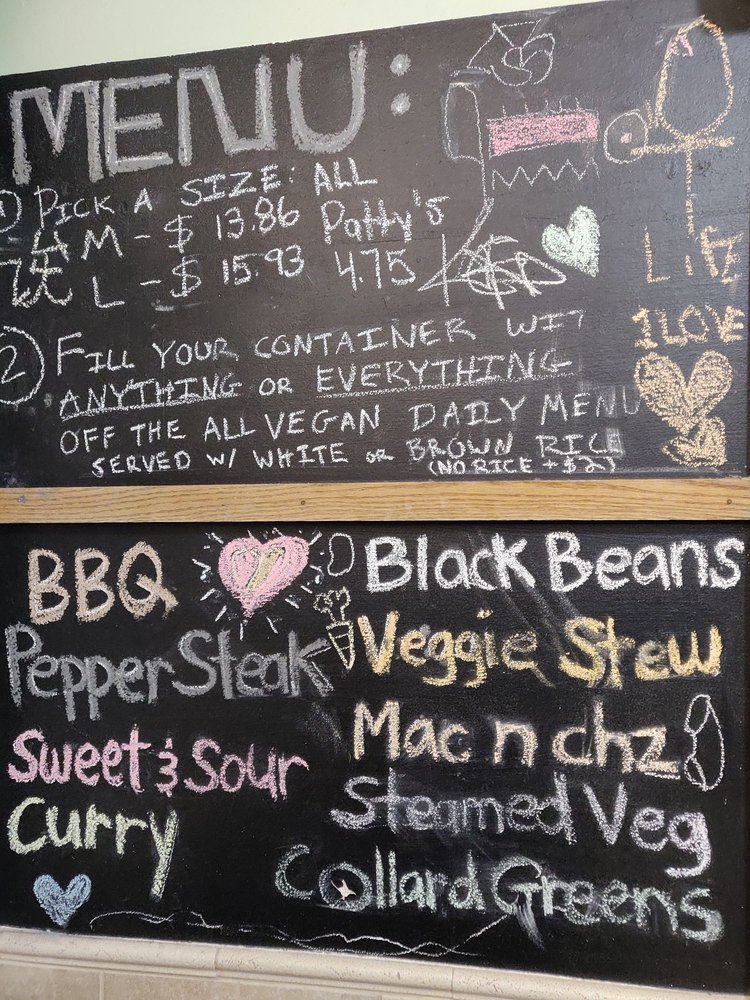 MENU:
1 PICK A SIZE: ALL
M - $ 13.86 Patty's
L - $ 15.93 4.75
2 FILL YOUR CONTAINER WIT
ANYTHING OR EVERYTHING
OFF THE ALL VEGAN DAILY MENU
SERVED W/ WHITE OR BROWN RICE
(NO RICE + $2)
LIFE
1 LOVE
BBQ
Pepper Steak
Sweet & Sour
Curry
Black Beans
Veggie Stew
Mac n chz
Steamed Veg
Collard Greens